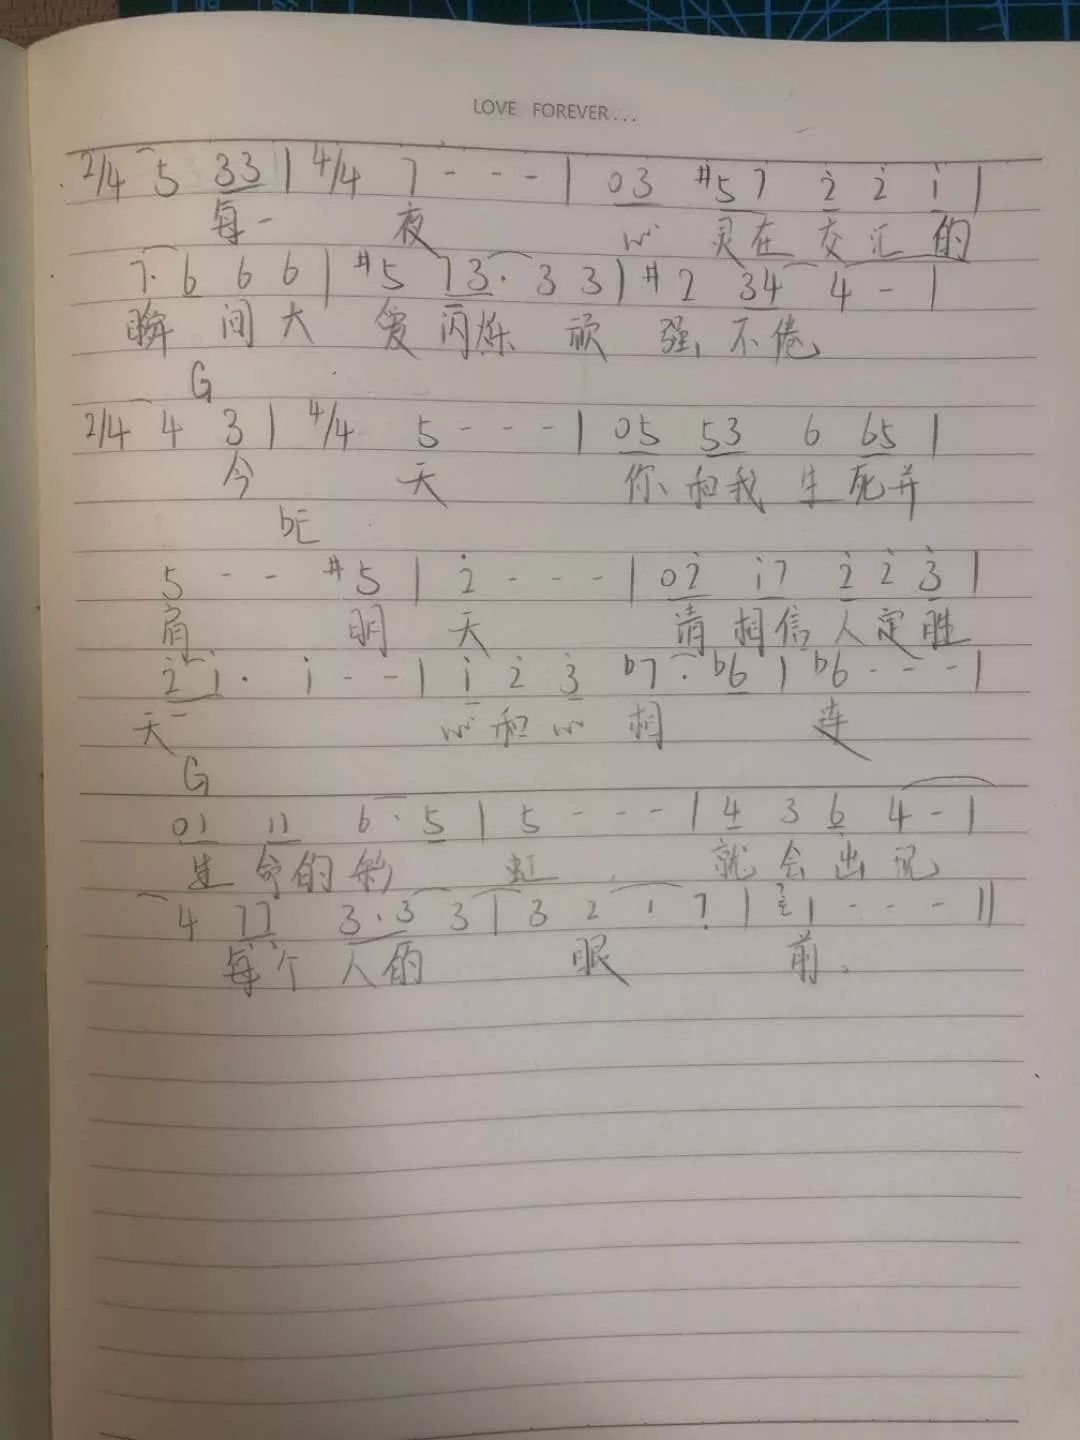 LOVE FOREVER...
2/4 5 33 | 4/4 7 - - - | 03 #57 2̇ 2̇ 1̇ |
每一 夜 心 灵在 交 汇 的
7. 6 6 6 | #5 73. 3 3 | #2 34 4 - |
瞬 间 大 爱 闪烁 顽 强 不 倦
G
2/4 4 3 | 4/4 5 - - - | 05 53 6 65 |
今 天 你 和我 生 死并
bE
5 - - #5 | 2̇ - - - | 02̇ 1̇7 2̇ 2̇ 3̇ |
肩 明 天 请 相信 人 定 胜
2̇1̇. 1̇ - - | 1̇ 2̇ 3̇ b7. b6 | b6 - - - |
天 心 和 心 相 连
G
01 11 6. 5 | 5 - - - | 4 3 6 4 - |
生 命的 彩 虹 就 会 出 现
4 77 3.3 3 | 3 2 1 7 | 1 - - - ||
每个 人 的 眼 前。